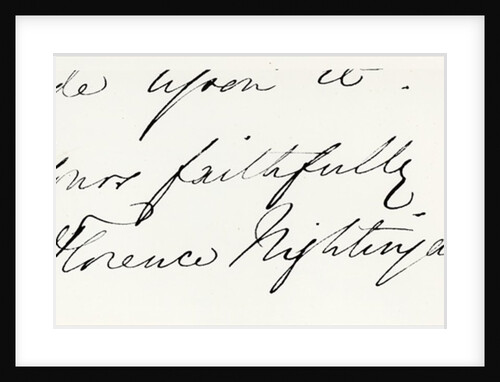 de upon it.
our faithfully
Florence Nightinga